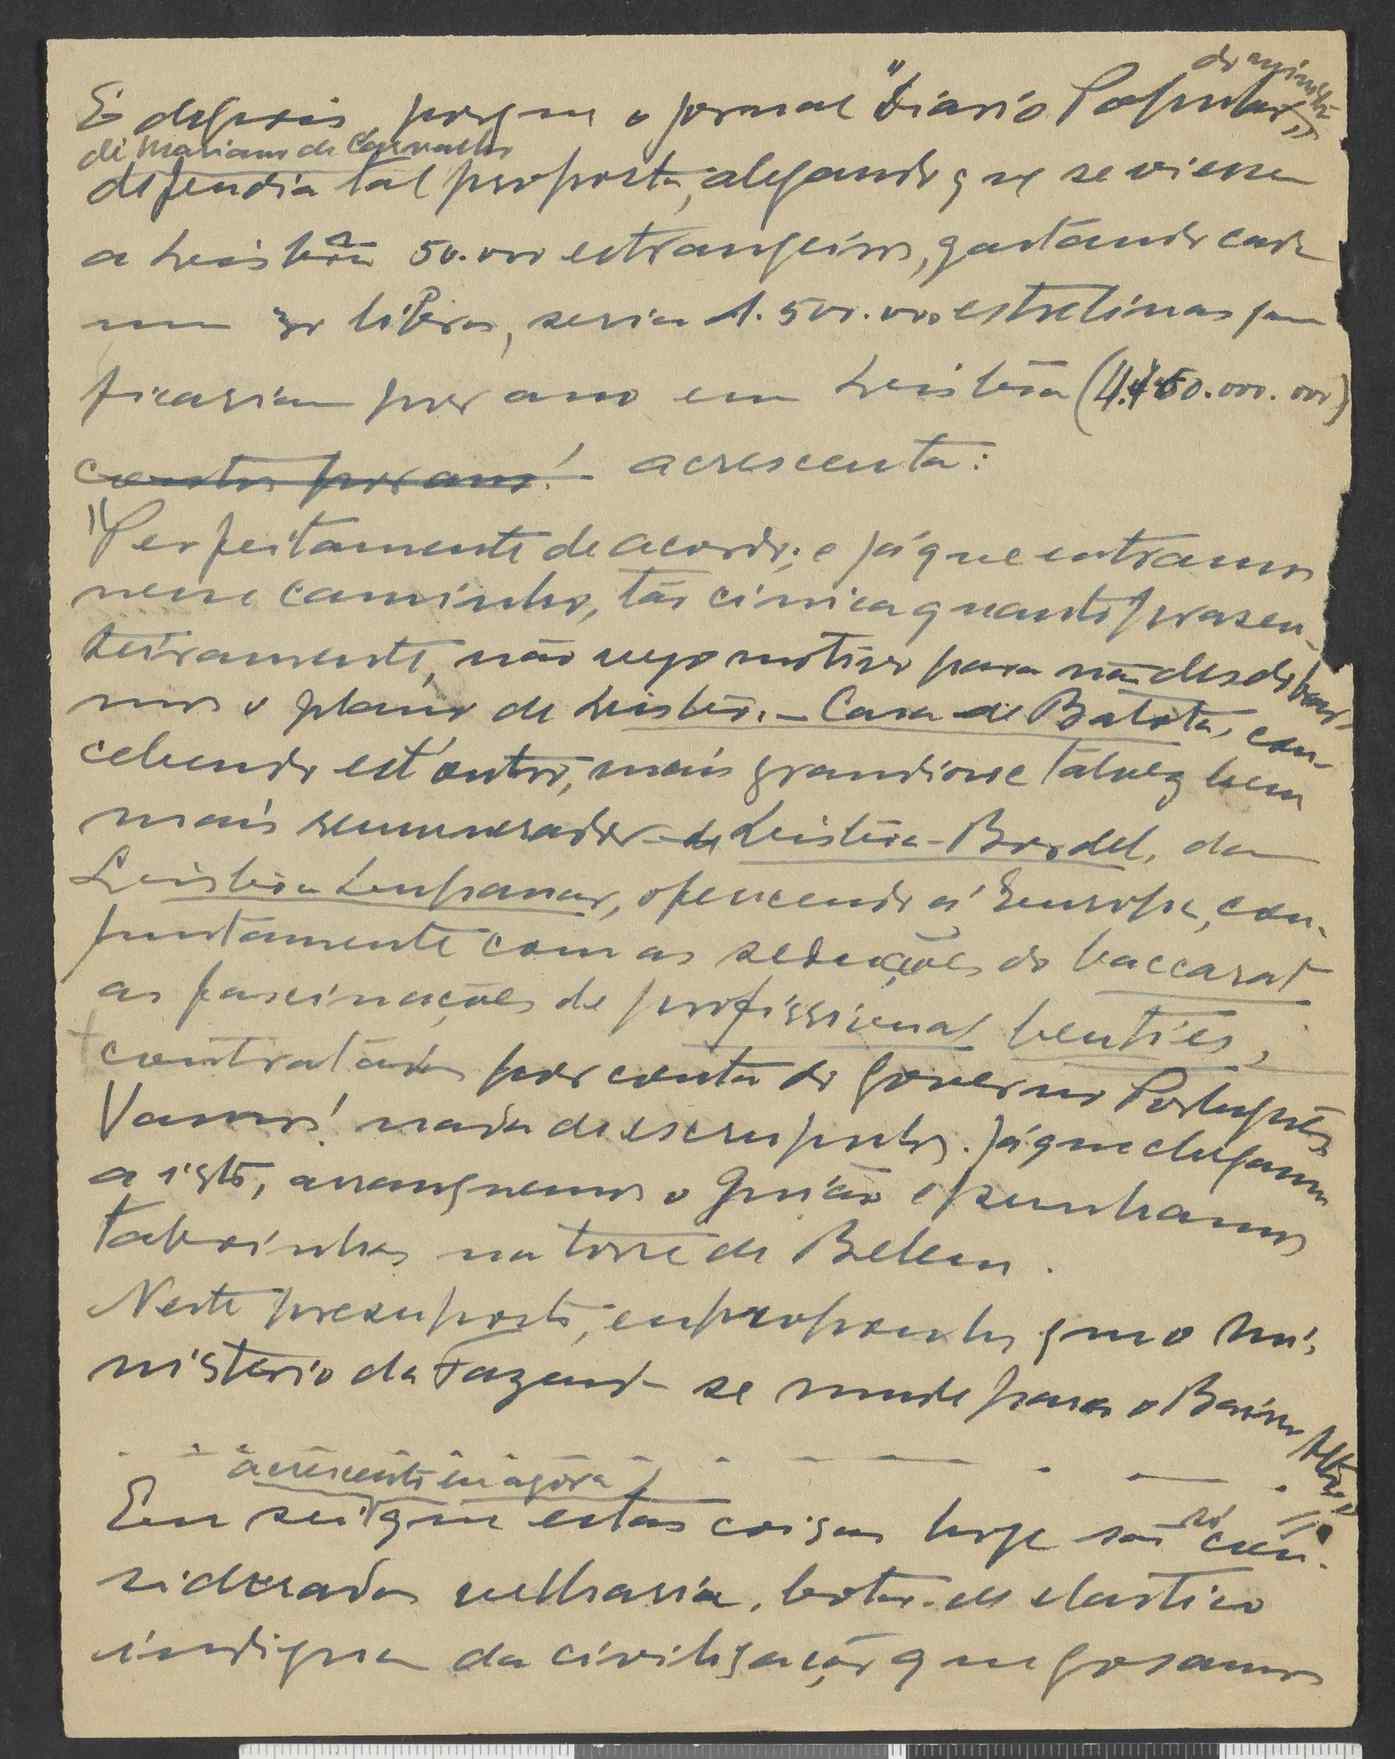 E depois porque o jornal "Diario Popular"
do ministro
de Mariano de Carvalho
defendia tal proposta, alegando q se viessem
a Lisboa 50.000 estrangeiros, gastando cada
um 30 libras, seria 1.500.000 estrelinas que
ficariam por ano em Lisboa (4.450.000.000)
contos por ano! acrescenta:
"Perfeitamente de acordo; e já que entramos
nesse caminho, tão cinica quanto prasen-
teiramente, não vejo motivo para não desdobrar-
mos o plano de Lisboa - Casa de Batota, con-
cebendo est'outro, mais grandioso e talvez bem
mais remunerador de Lisboa-Bordel, da
Lisboa Lupanar, oferecendo á Europa, con-
juntamente com as seduções do baccarat
as fascinações de profissional beuties,
contratadas por conta do governo Português
Vamos! nada de escrupulos. Já que chegamos
a isto, arranquemos o Guião e ponhamos
taboinhas na torre de Belem.
Neste presuposto, eu proponho que o Mi-
nisterio da Fazenda se mude para o Bairro Alto
acrescento eu agora
Eu sei que estas coisas hoje são só con-
sideradas velharia, botas de elastico
indignas da civilização que gosamos